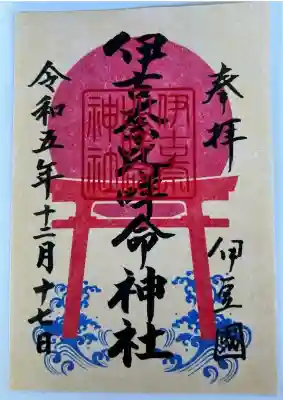 奉拝
伊豆國
伊古奈比咩命神社
令和五年十二月十七日
伊古奈
神社